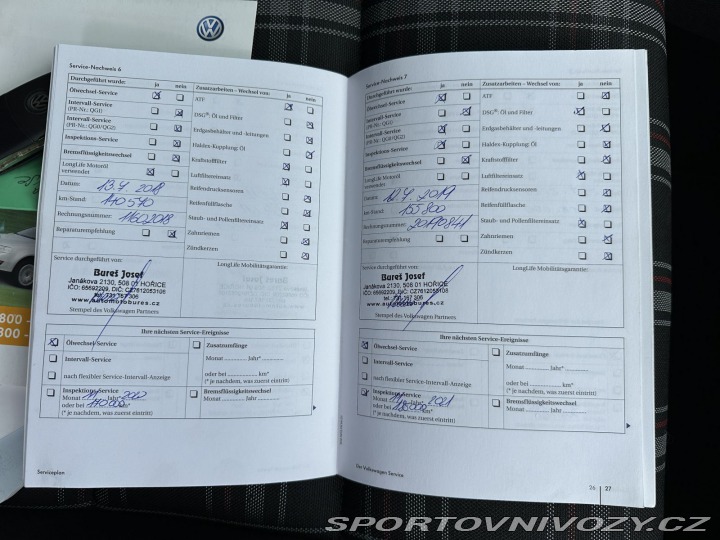 Service-Nachweis 6
Durchgeführt wurde: ja nein
Ölwechsel-Service
Intervall-Service
(PR-Nr.: QG1)
Intervall-Service
(PR-Nr.: QG0/QG2)
Inspektions-Service
Bremsflüssigkeitswechsel
LongLife Motoröl
verwendet
Datum: 13.4. 2018
km-Stand: 140 540
Rechnungsnummer: 11602018
Reparaturempfehlung
Zusatzarbeiten – Wechsel von: ja nein
ATF
DSG®: Öl und Filter
Erdgasbehälter und -leitungen
Haldex-Kupplung: Öl
Kraftstofffilter
Luftfiltereinsatz
Reifendrucksensoren
Reifenfüllflasche
Staub- und Pollenfiltereinsatz
Zahnriemen
Zündkerzen
Service durchgeführt von:
Bureš Josef
Janákova 2130, 508 01 HOŘICE
IČO: 65692209, DIČ: CZ7612053108
tel.: 731 167 306
www.automotobures.cz
Stempel des Volkswagen Partners
LongLife Mobilitätsgarantie:
Ihre nächsten Service-Ereignisse
Ölwechsel-Service
Intervall-Service
nach flexibler Service-Intervall-Anzeige
Inspektions-Service
Monat Jahr* 2020
oder bei
(* je nachdem, was zuerst eintritt)
Zusatzumfänge
Monat Jahr*
oder bei km*
(* je nachdem, was zuerst eintritt)
Bremsflüssigkeitswechsel
Monat Jahr
Serviceplan
Service-Nachweis 7
Durchgeführt wurde: ja nein
Ölwechsel-Service
Intervall-Service
(PR-Nr.: QG1)
Intervall-Service
(PR-Nr.: QG0/QG2)
Inspektions-Service
Bremsflüssigkeitswechsel
LongLife Motoröl
verwendet
Datum: 12.4. 2019
km-Stand: 155 800
Rechnungsnummer:
Reparaturempfehlung
Zusatzarbeiten – Wechsel von: ja nein
ATF
DSG®: Öl und Filter
Erdgasbehälter und -leitungen
Haldex-Kupplung: Öl
Kraftstofffilter
Luftfiltereinsatz
Reifendrucksensoren
Reifenfüllflasche
Staub- und Pollenfiltereinsatz
Zahnriemen
Zündkerzen
Service durchgeführt von:
Bureš Josef
Janákova 2130, 508 01 HOŘICE
IČO: 65692209, DIČ: CZ7612053108
tel.: 731 167 306
www.automotobures.cz
Stempel des Volkswagen Partners
LongLife Mobilitätsgarantie:
Ihre nächsten Service-Ereignisse
Ölwechsel-Service
Intervall-Service
nach flexibler Service-Intervall-Anzeige
Inspektions-Service
Monat Jahr* 2021
oder bei
(* je nachdem, was zuerst eintritt)
Zusatzumfänge
Monat Jahr*
oder bei km*
(* je nachdem, was zuerst eintritt)
Bremsflüssigkeitswechsel
Monat Jahr
Für Volkswagen Service
26 | 27
800 -
300 -
SPORTOVNIVOZY.CZ